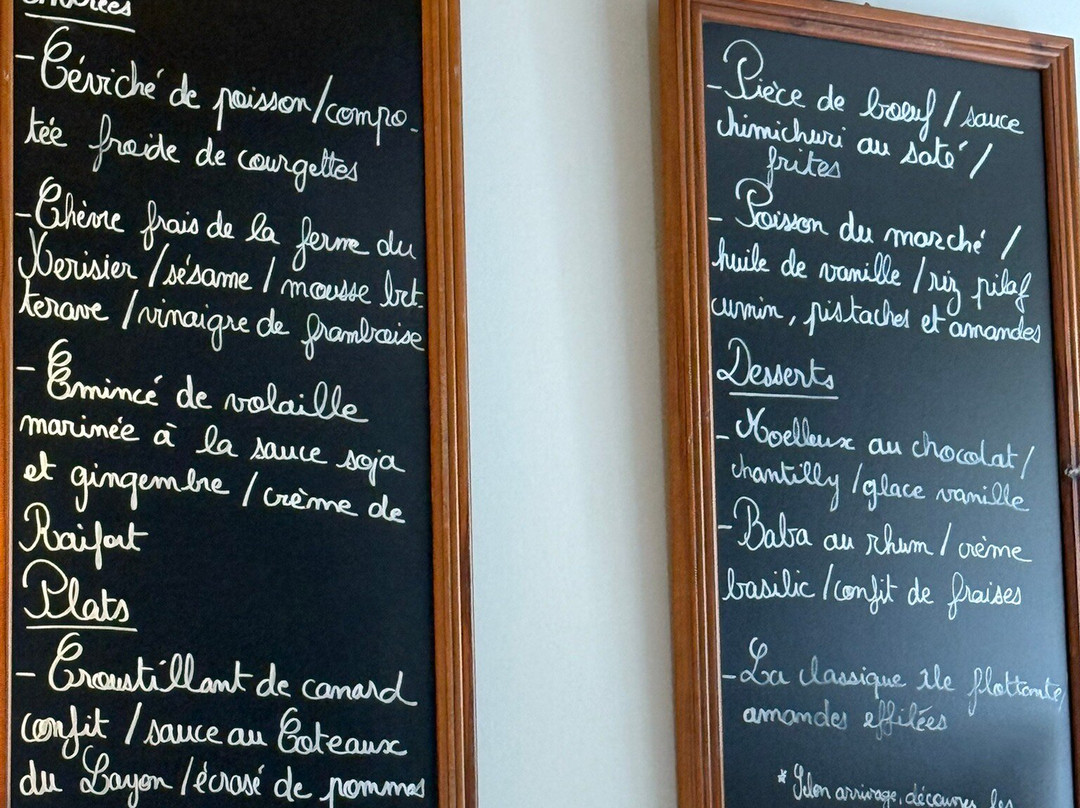 Entrées
- Céviché de poisson/compo-
tée froide de courgettes
- Chèvre frais de la ferme du
Merisier /sésame/ mousse bet-
terave /vinaigre de framboise
- Émincé de volaille
marinée à la sauce soja
et gingembre /crème de
Raifort
Plats
- Croustillant de canard
confit /sauce au Coteaux
du Layon /écrasé de pommes
- Pièce de boeuf /sauce
chimichuri au saté /
frites
- Poisson du marché /
huile de vanille /riz pilaf
cumin, pistaches et amandes
Desserts
- Moelleux au chocolat/
chantilly /glace vanille
- Baba au rhum / crème
basilic /confit de fraises
- La classique île flottante/
amandes effilées
* Selon arrivage, découvrez les